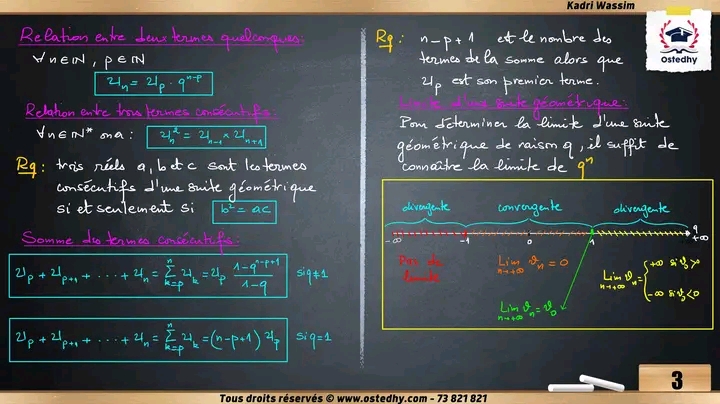 Kadri Wassim
Ostedhy
Relation entre deux termes quelconques:
∀n∈ℕ, p∈ℕ
Uₙ = Uₚ · qⁿ⁻ᵖ
Relation entre trois termes consécutifs:
∀n∈ℕ* on a : Uₙ² = Uₙ₋₁ × Uₙ₊₁
Rq : trois réels a, b et c sont les termes
consécutifs d'une suite géométrique
si et seulement si b² = ac
Somme des termes consécutifs:
Uₚ + Uₚ₊₁ + . . . + Uₙ = Σₖ₌ₚⁿ Uₖ = Uₚ (1-qⁿ⁻ᵖ⁺¹)/(1-q) si q≠1
Uₚ + Uₚ₊₁ + . . . + Uₙ = Σₖ₌ₚⁿ Uₖ = (n-p+1) Uₚ si q=1
Rq : n-p+1 est le nombre des
termes de la somme alors que
Uₚ est son premier terme.
Limite d'une suite géométrique:
Pour déterminer la limite d'une suite
géométrique de raison q, il suffit de
connaître la limite de qⁿ
divergente convergente divergente
-∞ -1 0 1 q +∞
Pas de
limite
Lim n→+∞ vₙ = 0
Lim n→+∞ vₙ = v₀
Lim n→+∞ vₙ = { +∞ si v₀>0
-∞ si v₀<0
3
Tous droits réservés © www.ostedhy.com - 73 821 821